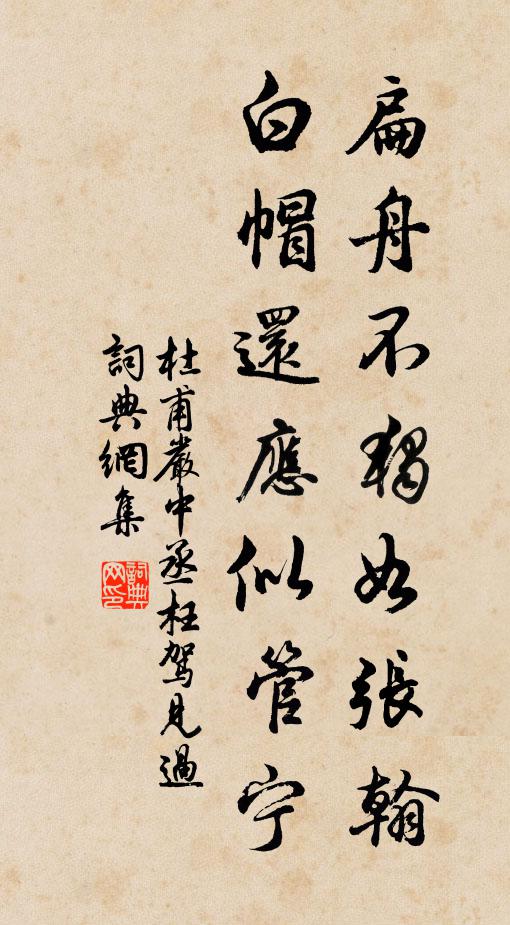 扁舟不獨如張翰
白帽還應似管宁
杜甫嚴中丞枉駕見過
詞典網集
詞典网印